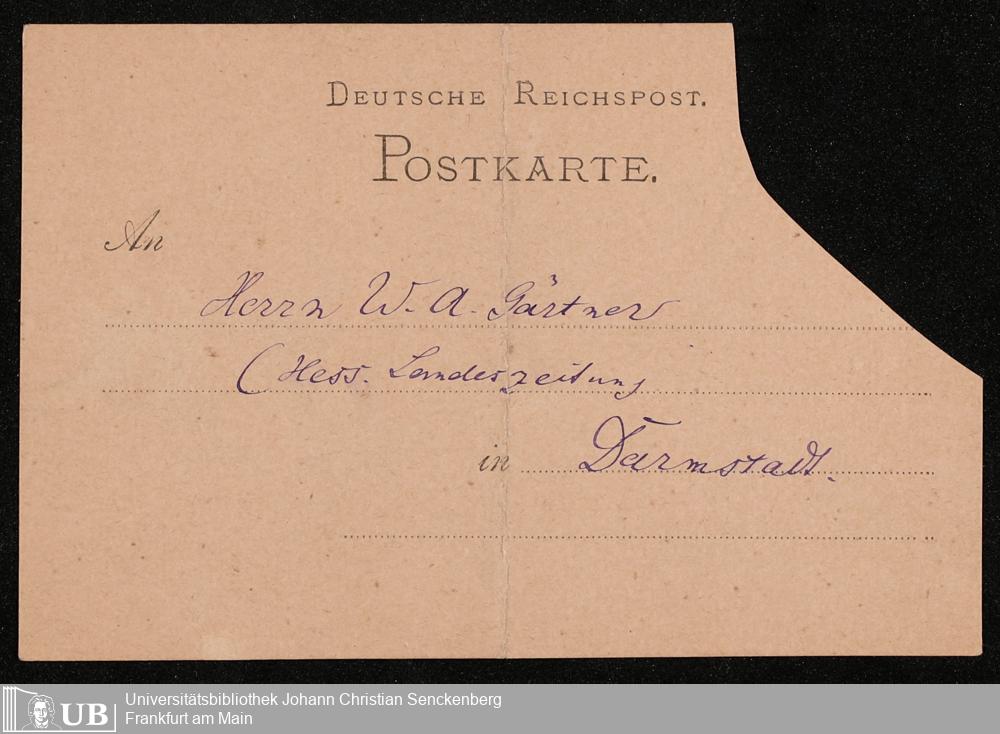 DEUTSCHE REICHSPOST.
POSTKARTE.
An
Herrn W. A. Gärtner
(Hess. Landeszeitung
in Darmstadt.
UB
Universitätsbibliothek Johann Christian Senckenberg
Frankfurt am Main